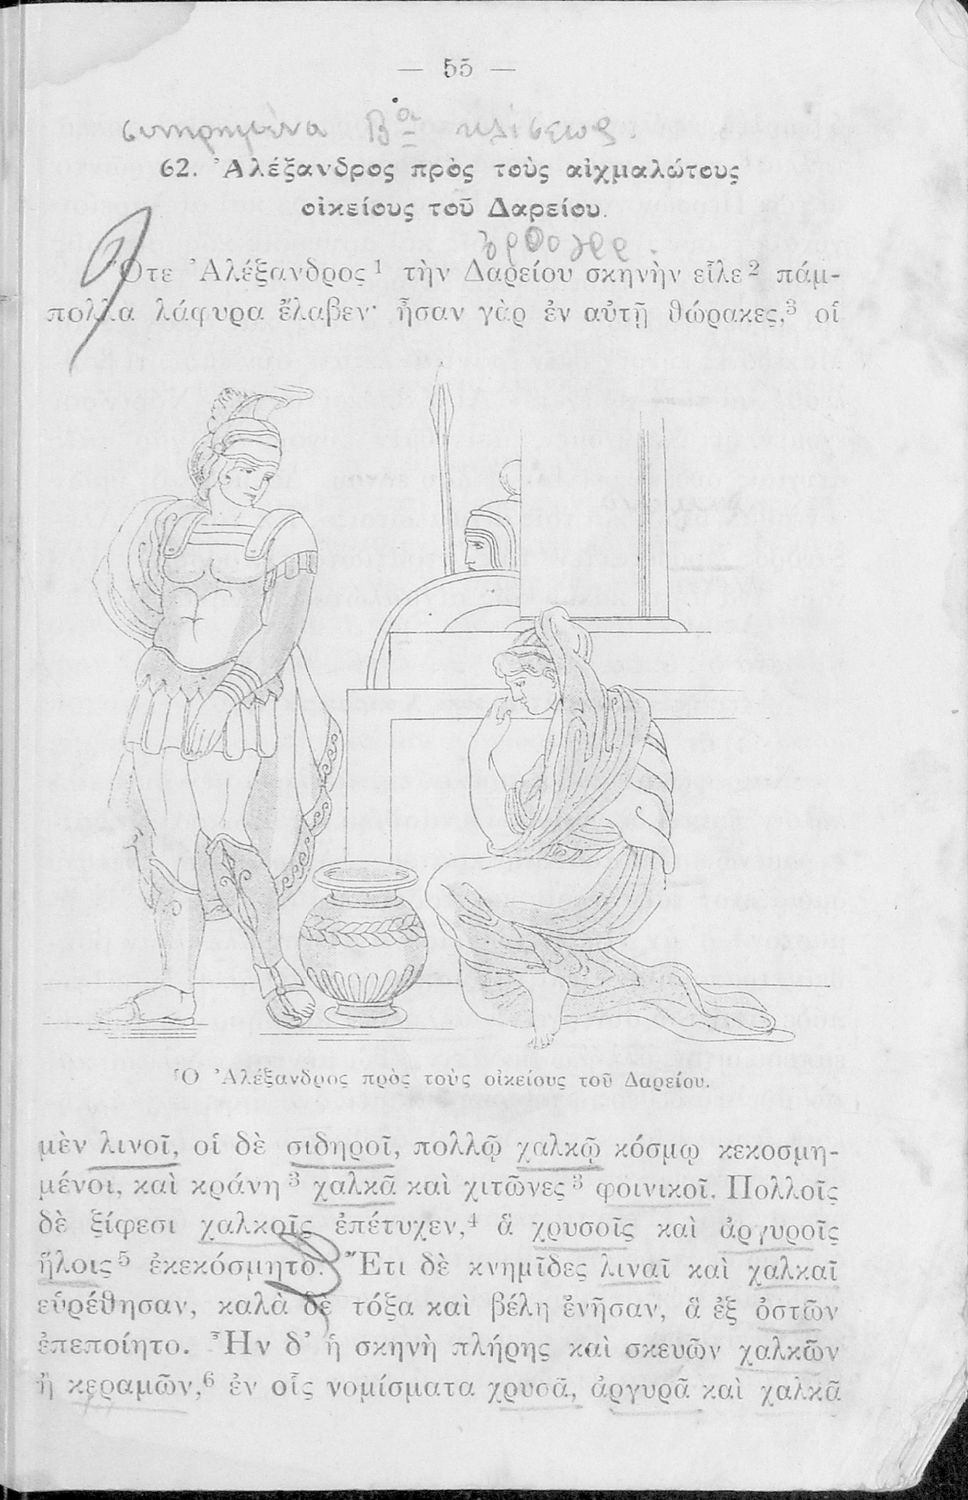 — 55 —
συνῃρημένα Βας κλίσεως.
62. Ἀλέξανδρος πρὸς τοὺς αἰχμαλώτους
οἰκείους τοῦ Δαρείου.
Ὅτε Ἀλέξανδρος¹ τὴν Δαρείου σκηνὴν εἷλε² πάμ-
πολλα λάφυρα ἔλαβεν· ἦσαν γὰρ ἐν αὐτῇ θώρακες,³ οἱ
Ὁ Ἀλέξανδρος πρὸς τοὺς οἰκείους τοῦ Δαρείου.
μὲν λινοῖ, οἱ δὲ σιδηροῖ, πολλῷ χαλκῷ κόσμῳ κεκοσμη-
μένοι, καὶ κράνη³ χαλκᾶ καὶ χιτῶνες³ φοινικοῖ. Πολλοῖς
δὲ ξίφεσι χαλκοῖς ἐπέτυχεν,⁴ ἃ χρυσοῖς καὶ ἀργυροῖς
ἥλοις⁵ ἐκεκόσμητο. Ἔτι δὲ κνημῖδες λιναῖ καὶ χαλκαῖ
εὑρέθησαν, καλὰ δὲ τόξα καὶ βέλη ἐνῆσαν, ἃ ἐξ ὀστῶν
ἐπεποίητο. Ἦν δ' ἡ σκηνὴ πλήρης καὶ σκευῶν χαλκῶν
ἢ κεραμῶν,⁶ ἐν οἷς νομίσματα χρυσᾶ, ἀργυρᾶ καὶ χαλκᾶ